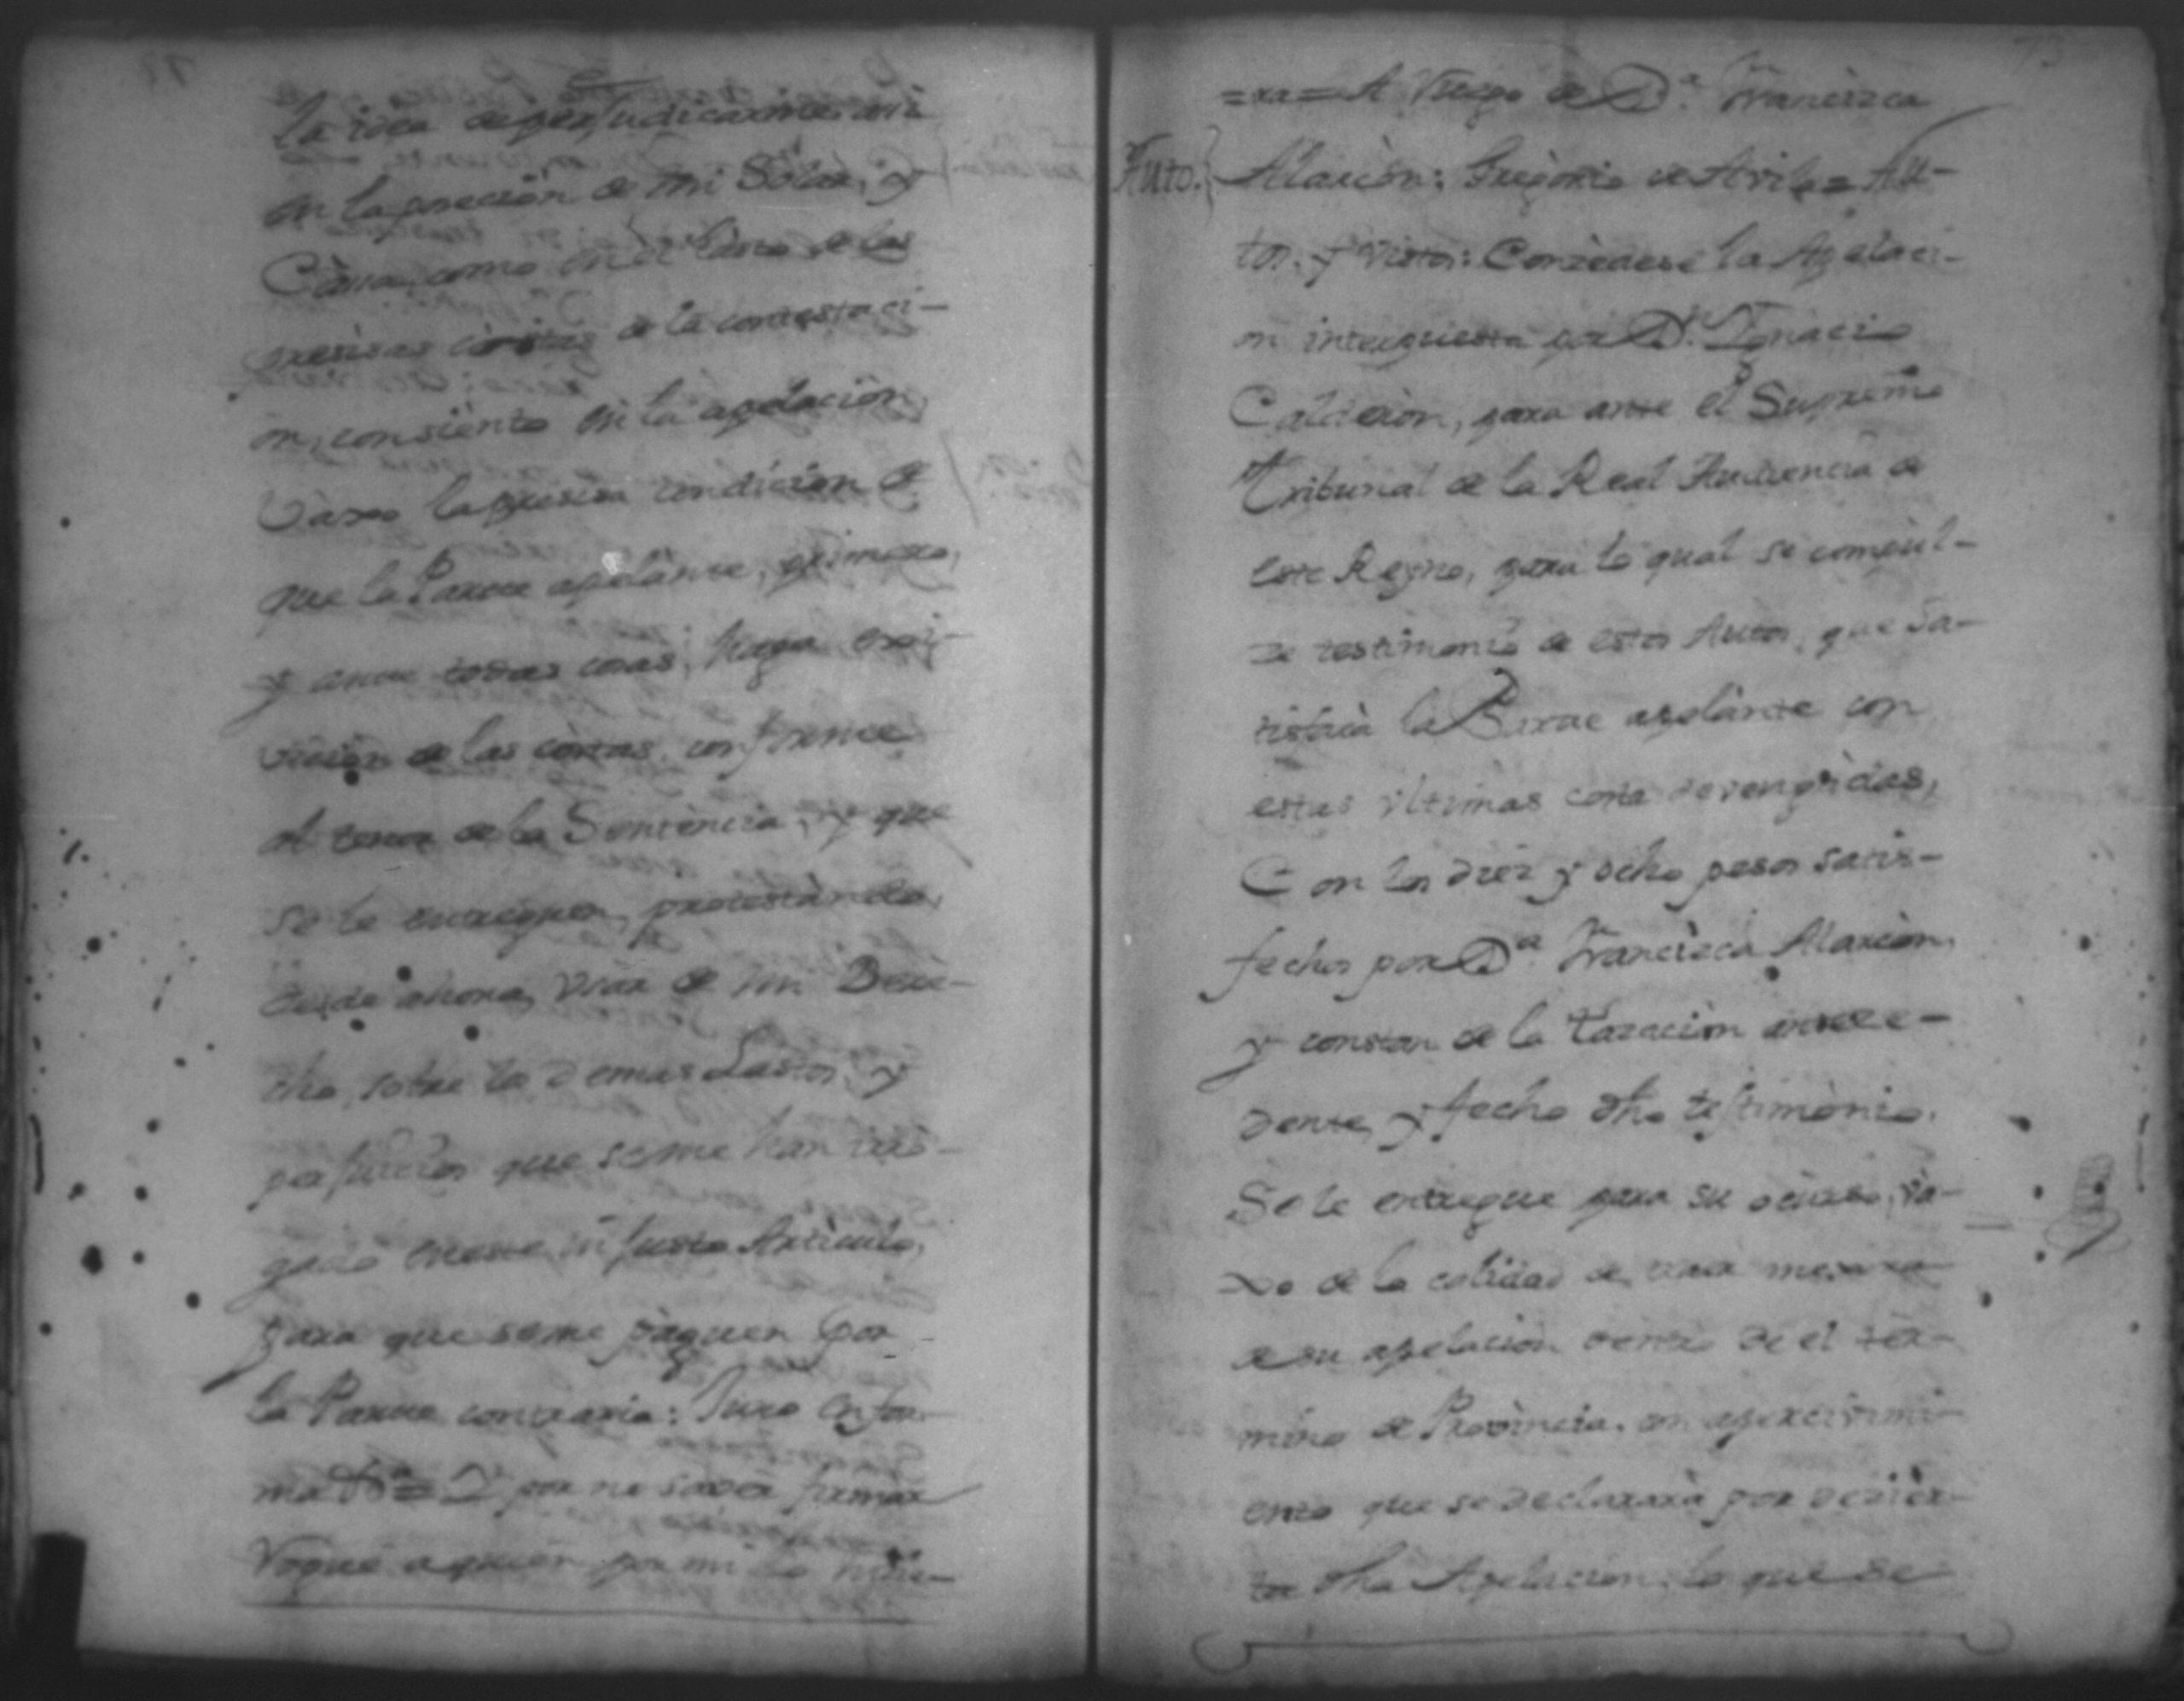 la idea de perjudicarme assi
en la posecion de mi Solar, y
Cassa como en el lanse de las
presisas costas de la contestaci-
on, consiento en la apelación,
vaxo la presisa condicion de
que la Parte apelante, primero,
y ante todas cosas, haga exsi-
vicion de las costas, conforme
al tenor de la Sentencia, y que
se le entreguen, protestando,
desde ahora, Usar de mi Dere-
cho, sobre los demas Lastos, y
perjuicios que se me han irro-
gado en este injusto Articulo,
para que se me paguen por
la Parte contraria: Juro en for-
ma Vª = Y por no saver firmar
Rogué a quien por mi lo hicie-
73
=ra= A Ruego de Dª. Francizca
Auto. Alarcòn: Gregorio de Aviles= Au-
tos, y Vistos: Concèdese la Apelaci-
on interpuesta por Dn. Ignacio
Calderon, para ante el Supremo
Tribunal de la Real Audiencia de
este Reyno, para lo qual se compul-
ze testimonio de estos Autos, que sa-
tisfarà la Parte apelante con
estas ultimas costa devengadas,
Con los diez y ocho pesos satis-
fechos por Dª. Francizca Alarcòn,
y constan de la tazaciòn antece-
dente, y fecho dho testimònio.
Se le entregue para su ocurso, va-
xo de la calidad de traer mejora
de su apelacion dentro de el ter-
mino de Provincia, con apercivimi-
ento que se declararà por decièr-
ta dha Apelacion, lo que se